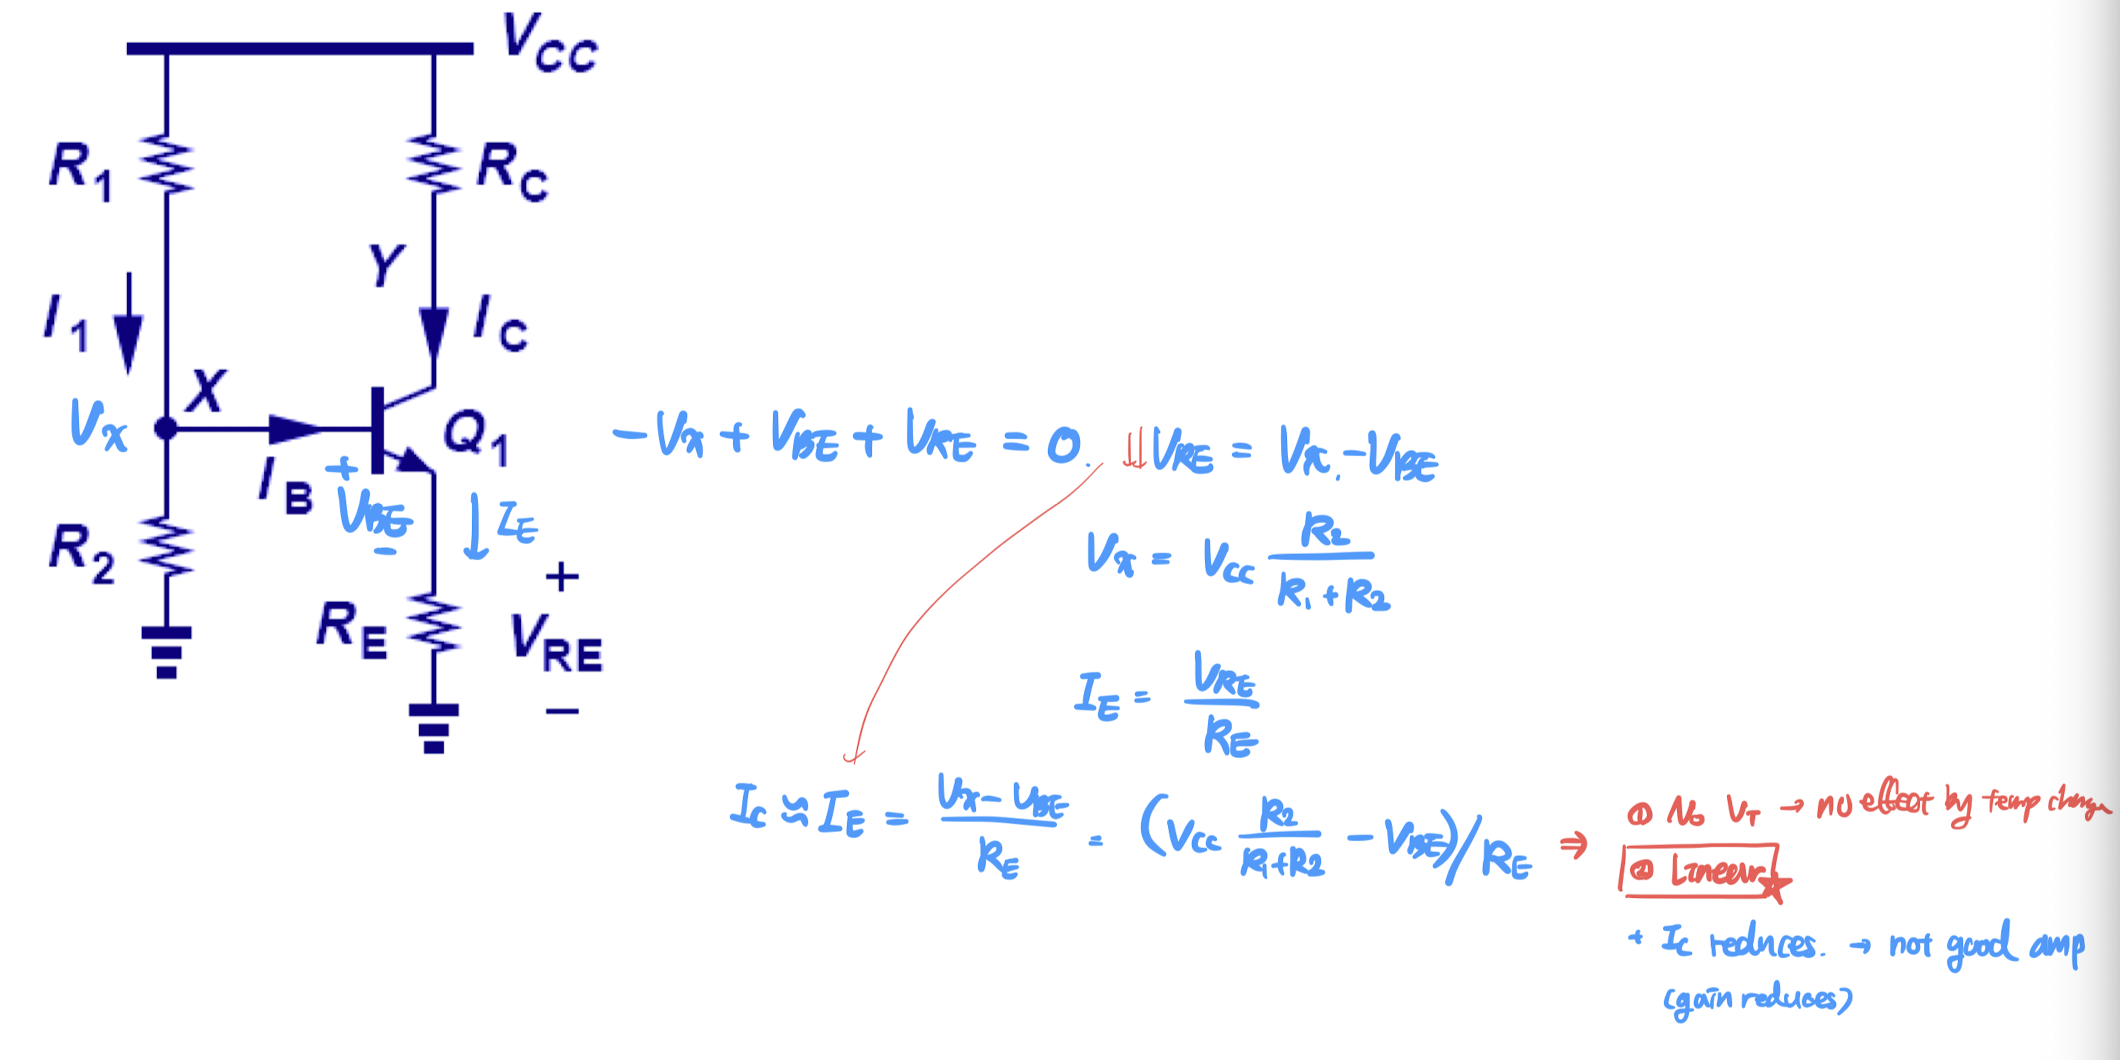 V_CC
R_1
R_C
Y
I_1
I_C
X
V_x
Q_1
I_B
+
V_BE
−
I_E
R_2
R_E
+
V_RE
−
−V_x + V_BE + V_RE = 0. ⇓ V_RE = V_x − V_BE
V_x = V_CC R_2 / (R_1 + R_2)
I_E = V_RE / R_E
I_C ≈ I_E = (V_x − V_BE) / R_E = (V_CC R_2 / (R_1 + R_2) − V_BE) / R_E ⇒
① No V_T → no effect by temp change
② Linear ★
+ I_C reduces. → not good amp
(gain reduces)